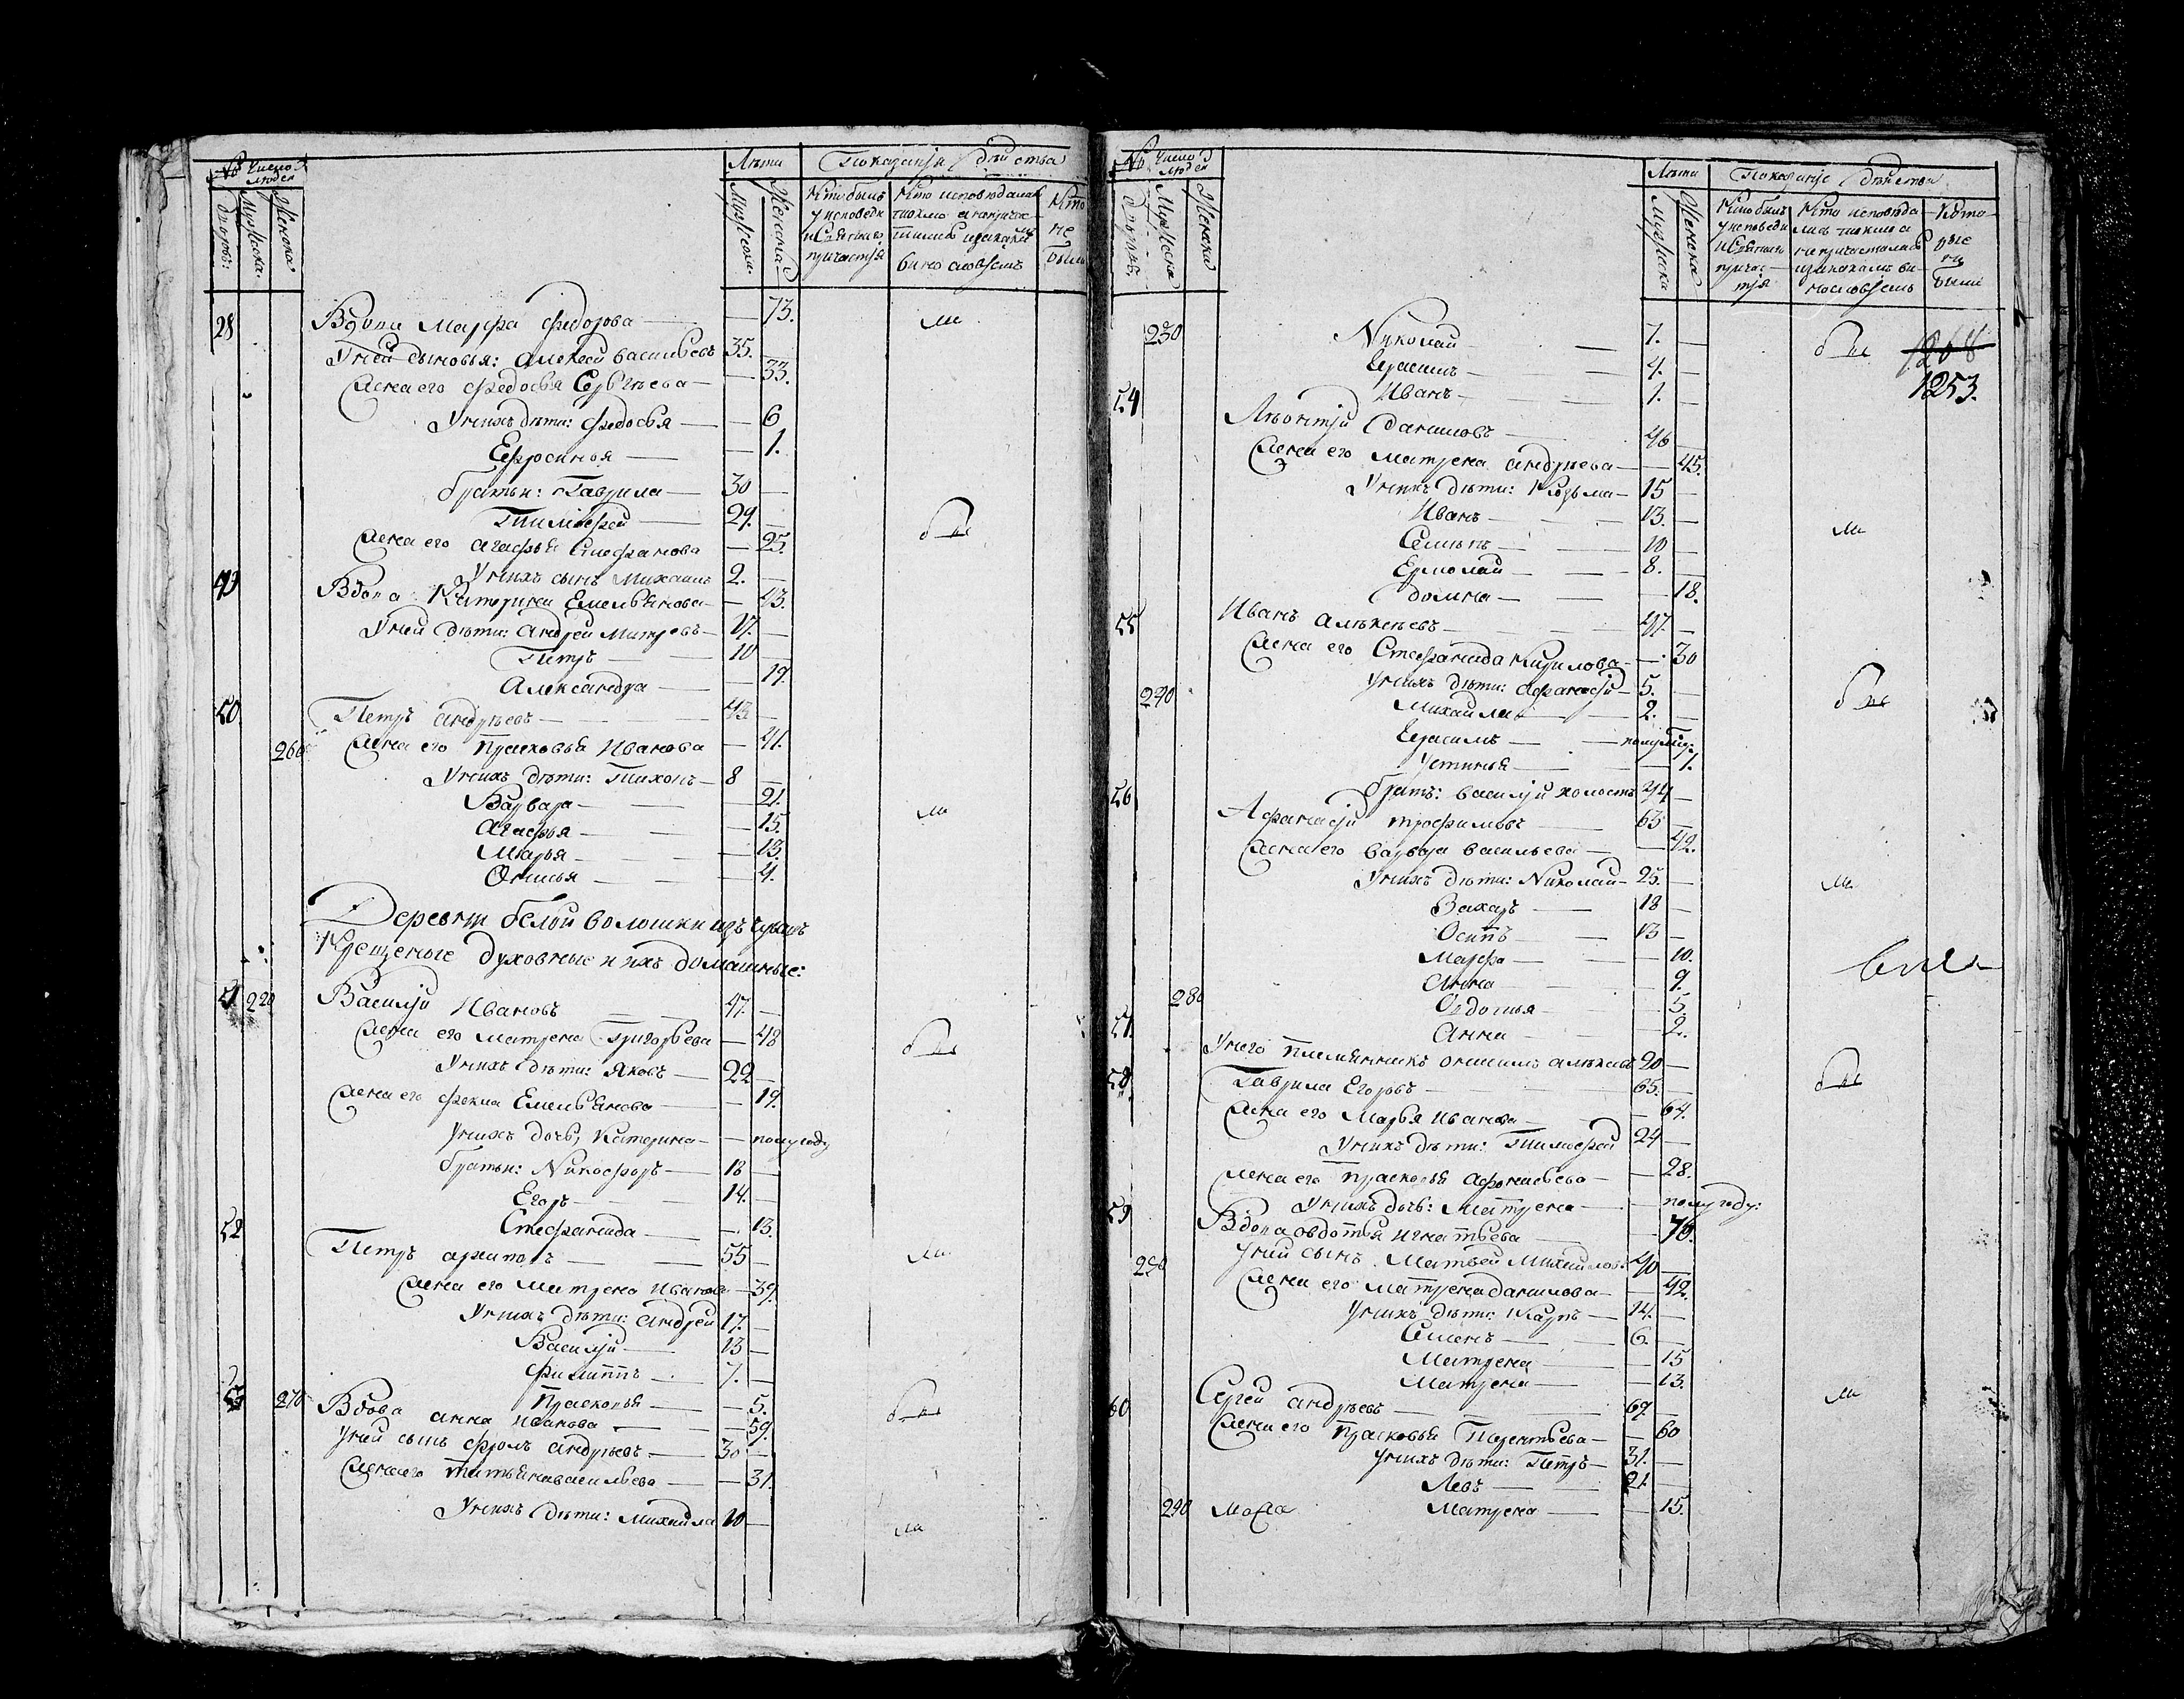 № Число людей Лѣта Показанiе дѣйства
дворовъ: Мужеска. Женска Мужеска. Женска.
Кто былъ у исповеди и святаго причастiя
Кто исповѣдалися токмо а непричастились и за какимъ винословiемъ
Кто не былъ
28 Вдова Марфа Федорова — 73.
У ней сыновья: Алексей Васильевъ 35. —
Жена его Федосья Сергѣева — 33.
У нихъ дѣти: Федосья — 6
Ефросинья — 1.
братьи: Гаврила 30 —
Тимофей 29. —
Жена его Агафья Стефанова — 25.
У нихъ сынъ Михаилъ 2. —
49 Вдова Катерина Емельянова — 43.
У ней дѣти: Андрей Митревъ 17. —
Петръ 10 —
Александра — 19.
50 Петръ Андрѣевъ 43 —
260 Жена его Прасковья Иванова — 41.
У нихъ дѣти: Тихонъ 8 —
Варвара — 21.
Агафья — 15.
Марья — 13.
Онисья — 4.
Деревни Белой Волошки изъ чувашъ
Крещеные духовные и ихъ домашные:
51 220 Василiй Ивановъ 47. —
Жена его Матрена Григорьева — 48
У нихъ дѣти: Яковъ 22 —
Жена его Фекла Емельянова — 19.
У нихъ дочь, Катерина — полугоду
братьи: Никофоръ 18 —
Егоръ 14. —
Стефанида — 13.
52 Петръ 55 —
Жена его Матрена Иванова — 39.
У нихъ дѣти: Андрей 17. —
Василiй 13 —
Филиппъ 7. —
270 Прасковья — 5.
53 Вдова Анна Иванова — 59.
У ней сынъ Фролъ Андрѣевъ 30 —
Жена его Татьяна Васильева — 31.
У нихъ дѣти: Михайла 10 —
№ Число людей Лѣта Показанiе дѣйства
дворовъ. Мужеска Женска Мужеска Женска
Кто былъ у исповеди и святаго причастiя
Кто исповѣдались токмо а непричастились и за какимъ винословiемъ
Которые не были
1208
1253.
230 Николай 7. —
Герасимъ 4. —
Иванъ 1. —
54 Леонтiй Даниловъ 46 —
Жена его Матрена Андрѣева — 45.
У нихъ дѣти: Козьма 15 —
Иванъ 13. —
Семенъ 10 —
Ермолай 8. —
Домна — 18.
55 Иванъ Алѣксѣевъ 47. —
Жена его Стефанида Кирилова — 30
У нихъ дѣти: Афанасiй 5. —
240 Михайла 2. —
Герасимъ полугоду
Устинья — 1.
братъ: Василiй холостъ 44 —
56 Афанасiй Трофимовъ 63 —
Жена его Варвара Васильева — 42.
У нихъ дѣти: Николай 25. —
Захаръ 18 —
Осипъ 13 —
Марфа — 10.
Анна — 9.
280 Овдотья — 5.
Анна — 2.
57. У него племянникъ Онисимъ Алѣксѣевъ 20 —
58. Гаврила Егоровъ 65. —
Жена его Марья Иванова — 64.
У нихъ дѣти: Тимофей 24 —
Жена его Прасковья Афонасьева — 28.
У нихъ дочь: Матрена — полугоду:
59 Вдова Овдотья Игнатьева — 70.
250 У ней сынъ Матвей Михайловъ 40 —
Жена его Матрена Данилова — 42.
У нихъ дѣти: Карпъ 14. —
Семенъ 6. —
Матрена — 15
Матрена — 13.
60 Сергей Андрѣевъ 69. —
Жена его Прасковья Терентьева — 60
У нихъ дѣти: Петръ 31. —
Левъ 21 —
290 Матрена — 15.